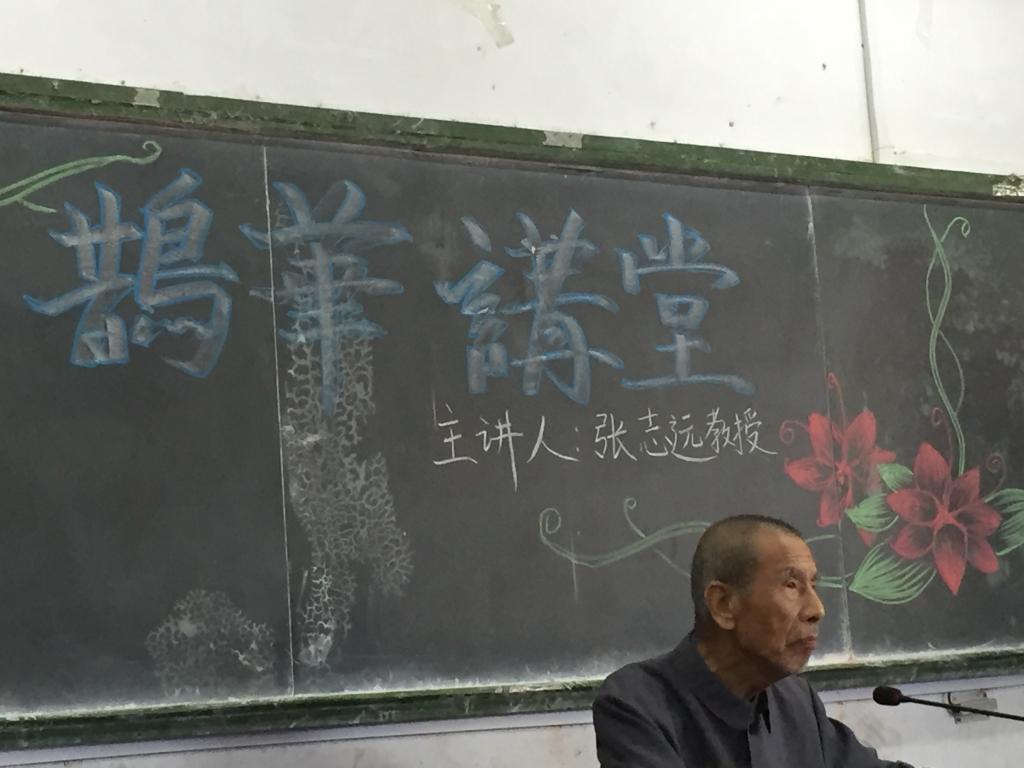 鵲華講堂
主讲人:张志远教授